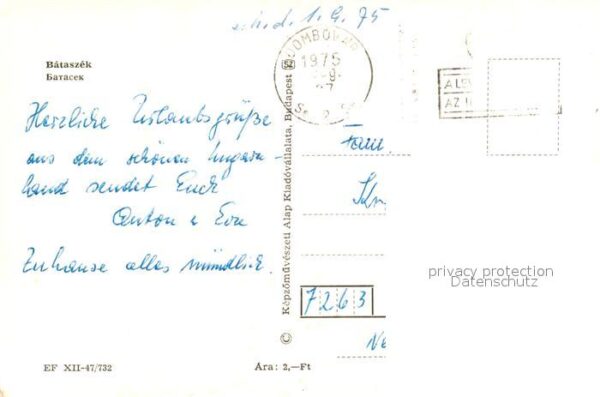 1. 9. 75
DOMBOVÁR
1975
Bátaszék
Батасек
Herzliche Urlaubsgrüße
aus dem schönen Ungarn-
land sendet Euch
Anton u Eva
Zuhause alles mündlich.
Képzőművészeti Alap Kiadóvállalata, Budapest
©
Fam.
7263
privacy protection
Datenschutz
EF XII-47/732
Ára: 2,—Ft